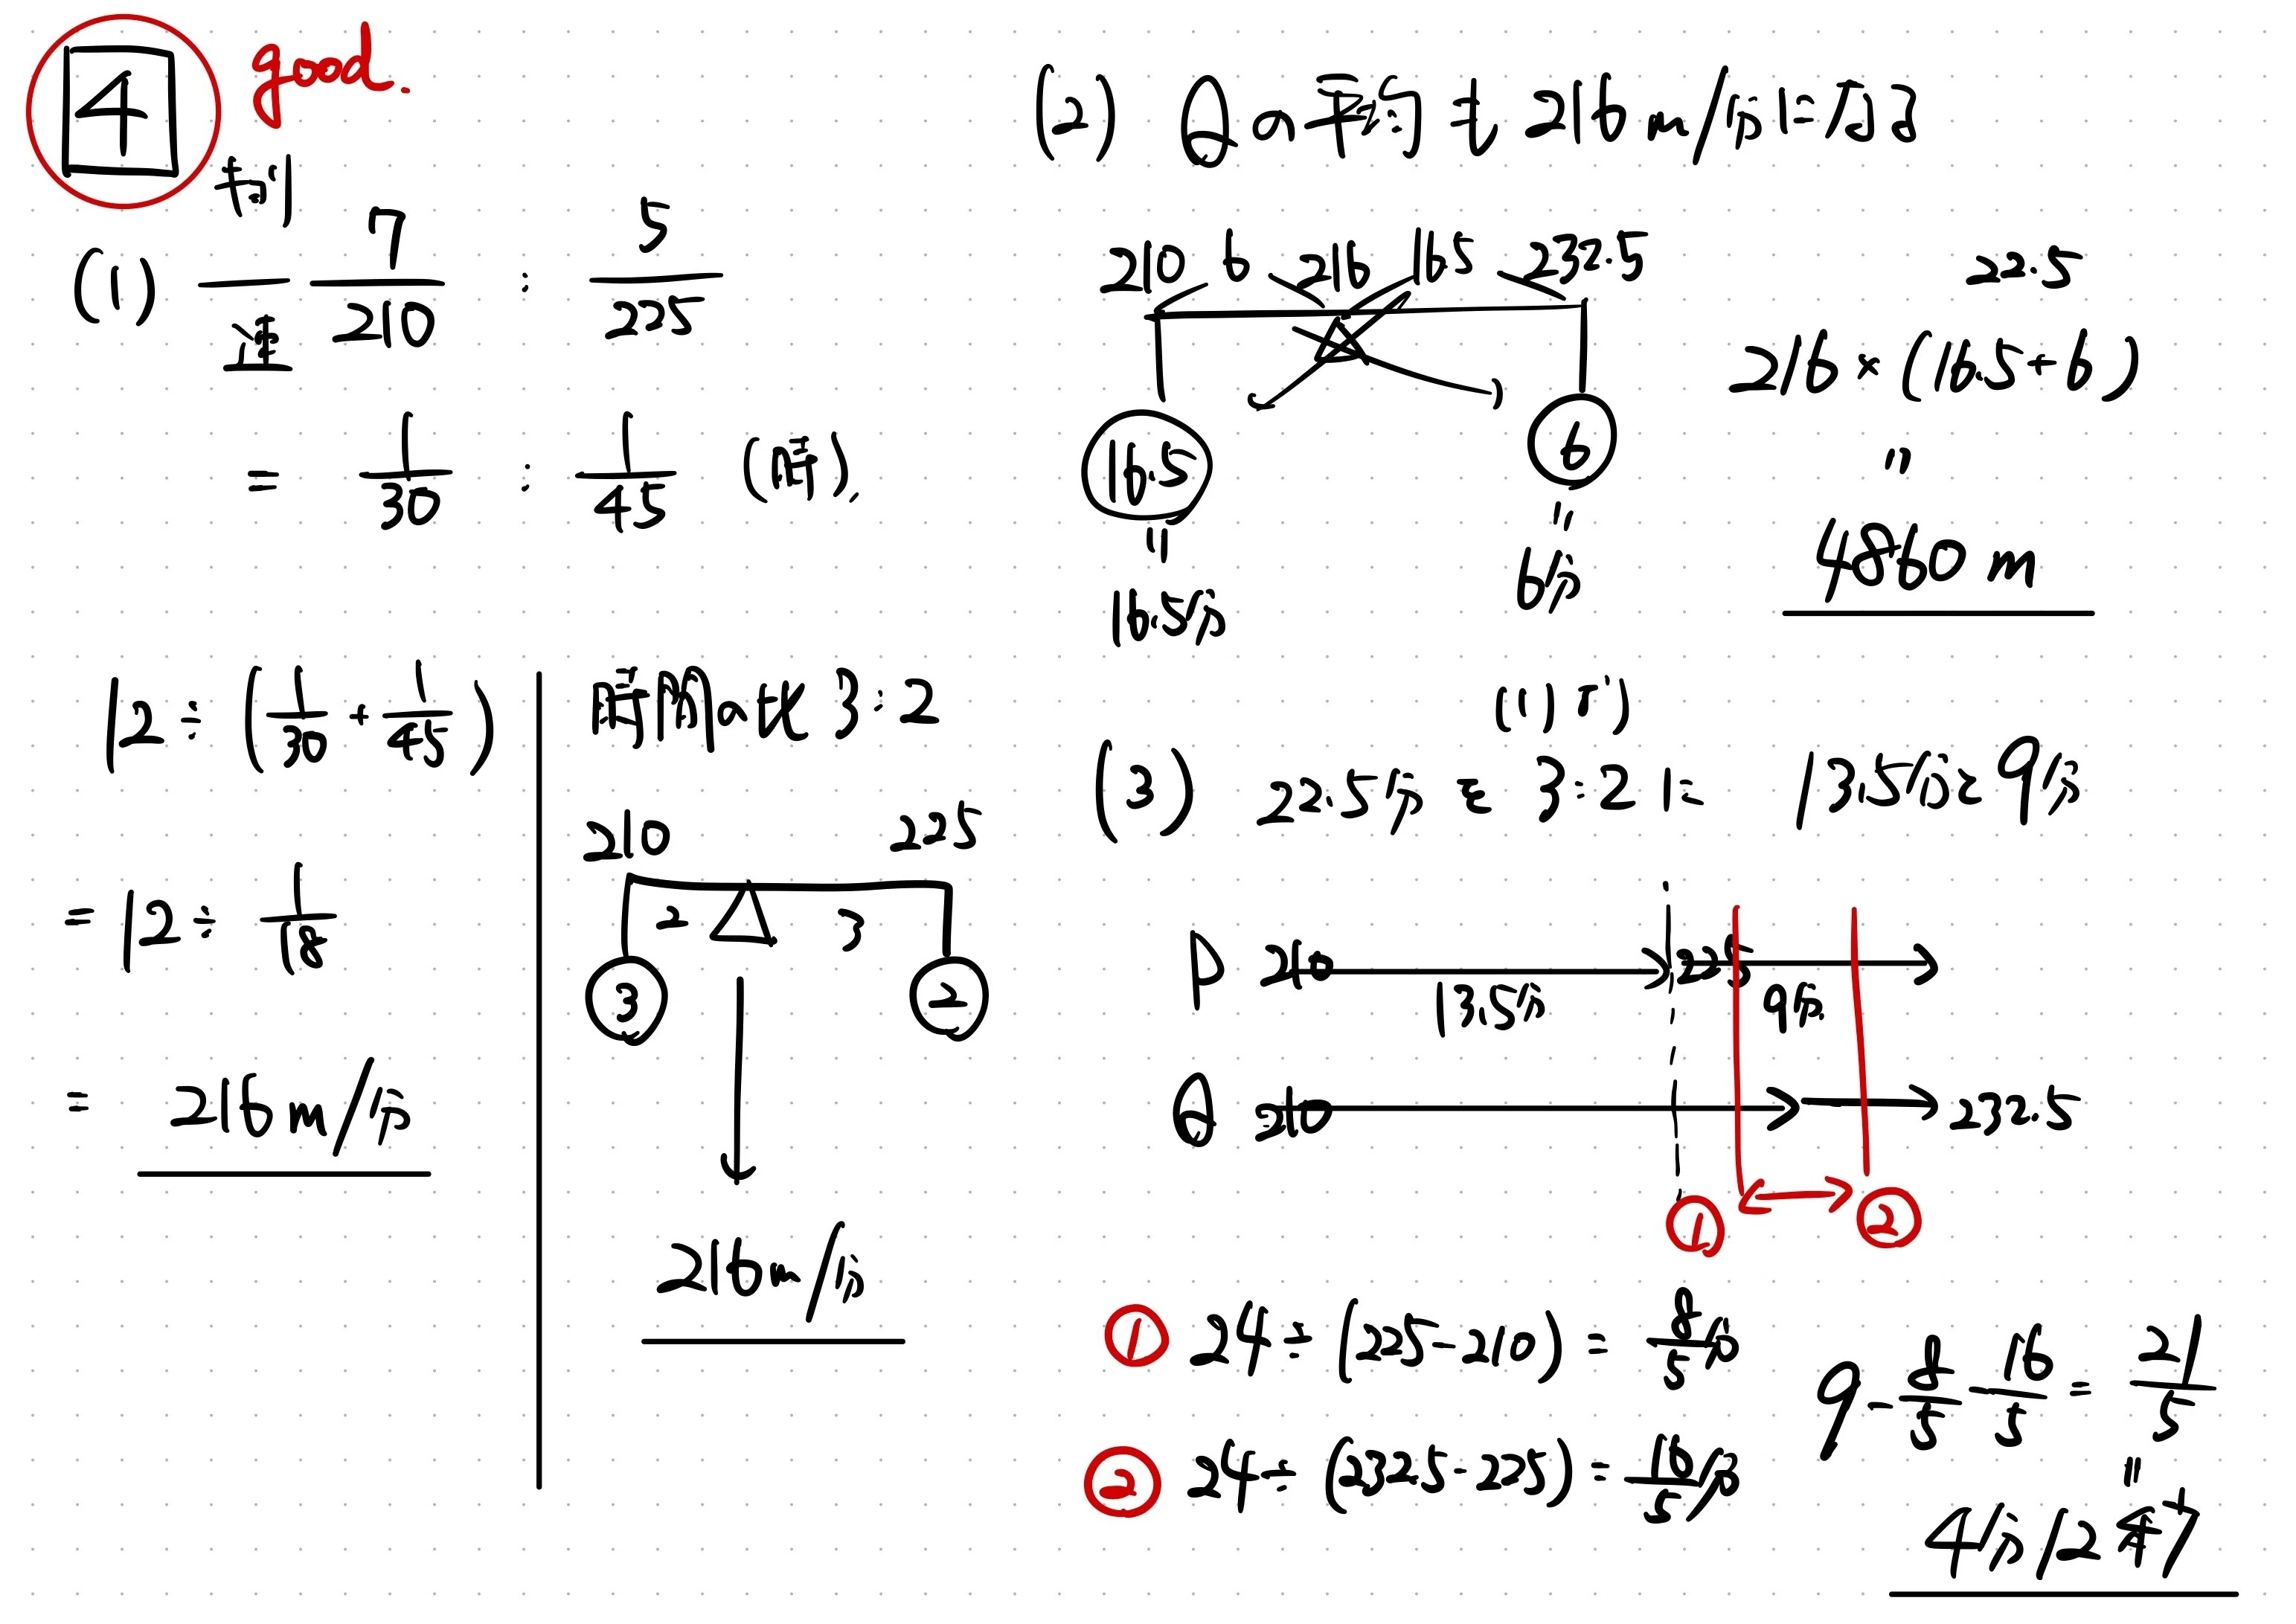 4 good.
(1) キョリ/速 7/210 : 5/225
= 1/30 : 1/45 (時)
12 ÷ (1/30 + 1/45)
= 12 ÷ 1/18
= 216 m/分
時間の比 3:2
210 225
2 3
③ ②
216 m/分
(2) Qの平均も 216 m/分になる
210 6 216 16.5 232.5
16.5 6
〃 〃
16.5分 6分
22.5
216 × (16.5 + 6)
〃
4860 m
(1)より
(3) 22.5分を 3:2に 13.5分と9分
P 210 225
13.5分 9分
Q 210 232.5
① ②
① 24 ÷ (225-210) = 8/5分
② 24 ÷ (232.5-225) = 16/5分
9 - 8/5 - 16/5 = 21/5
〃
4分12秒